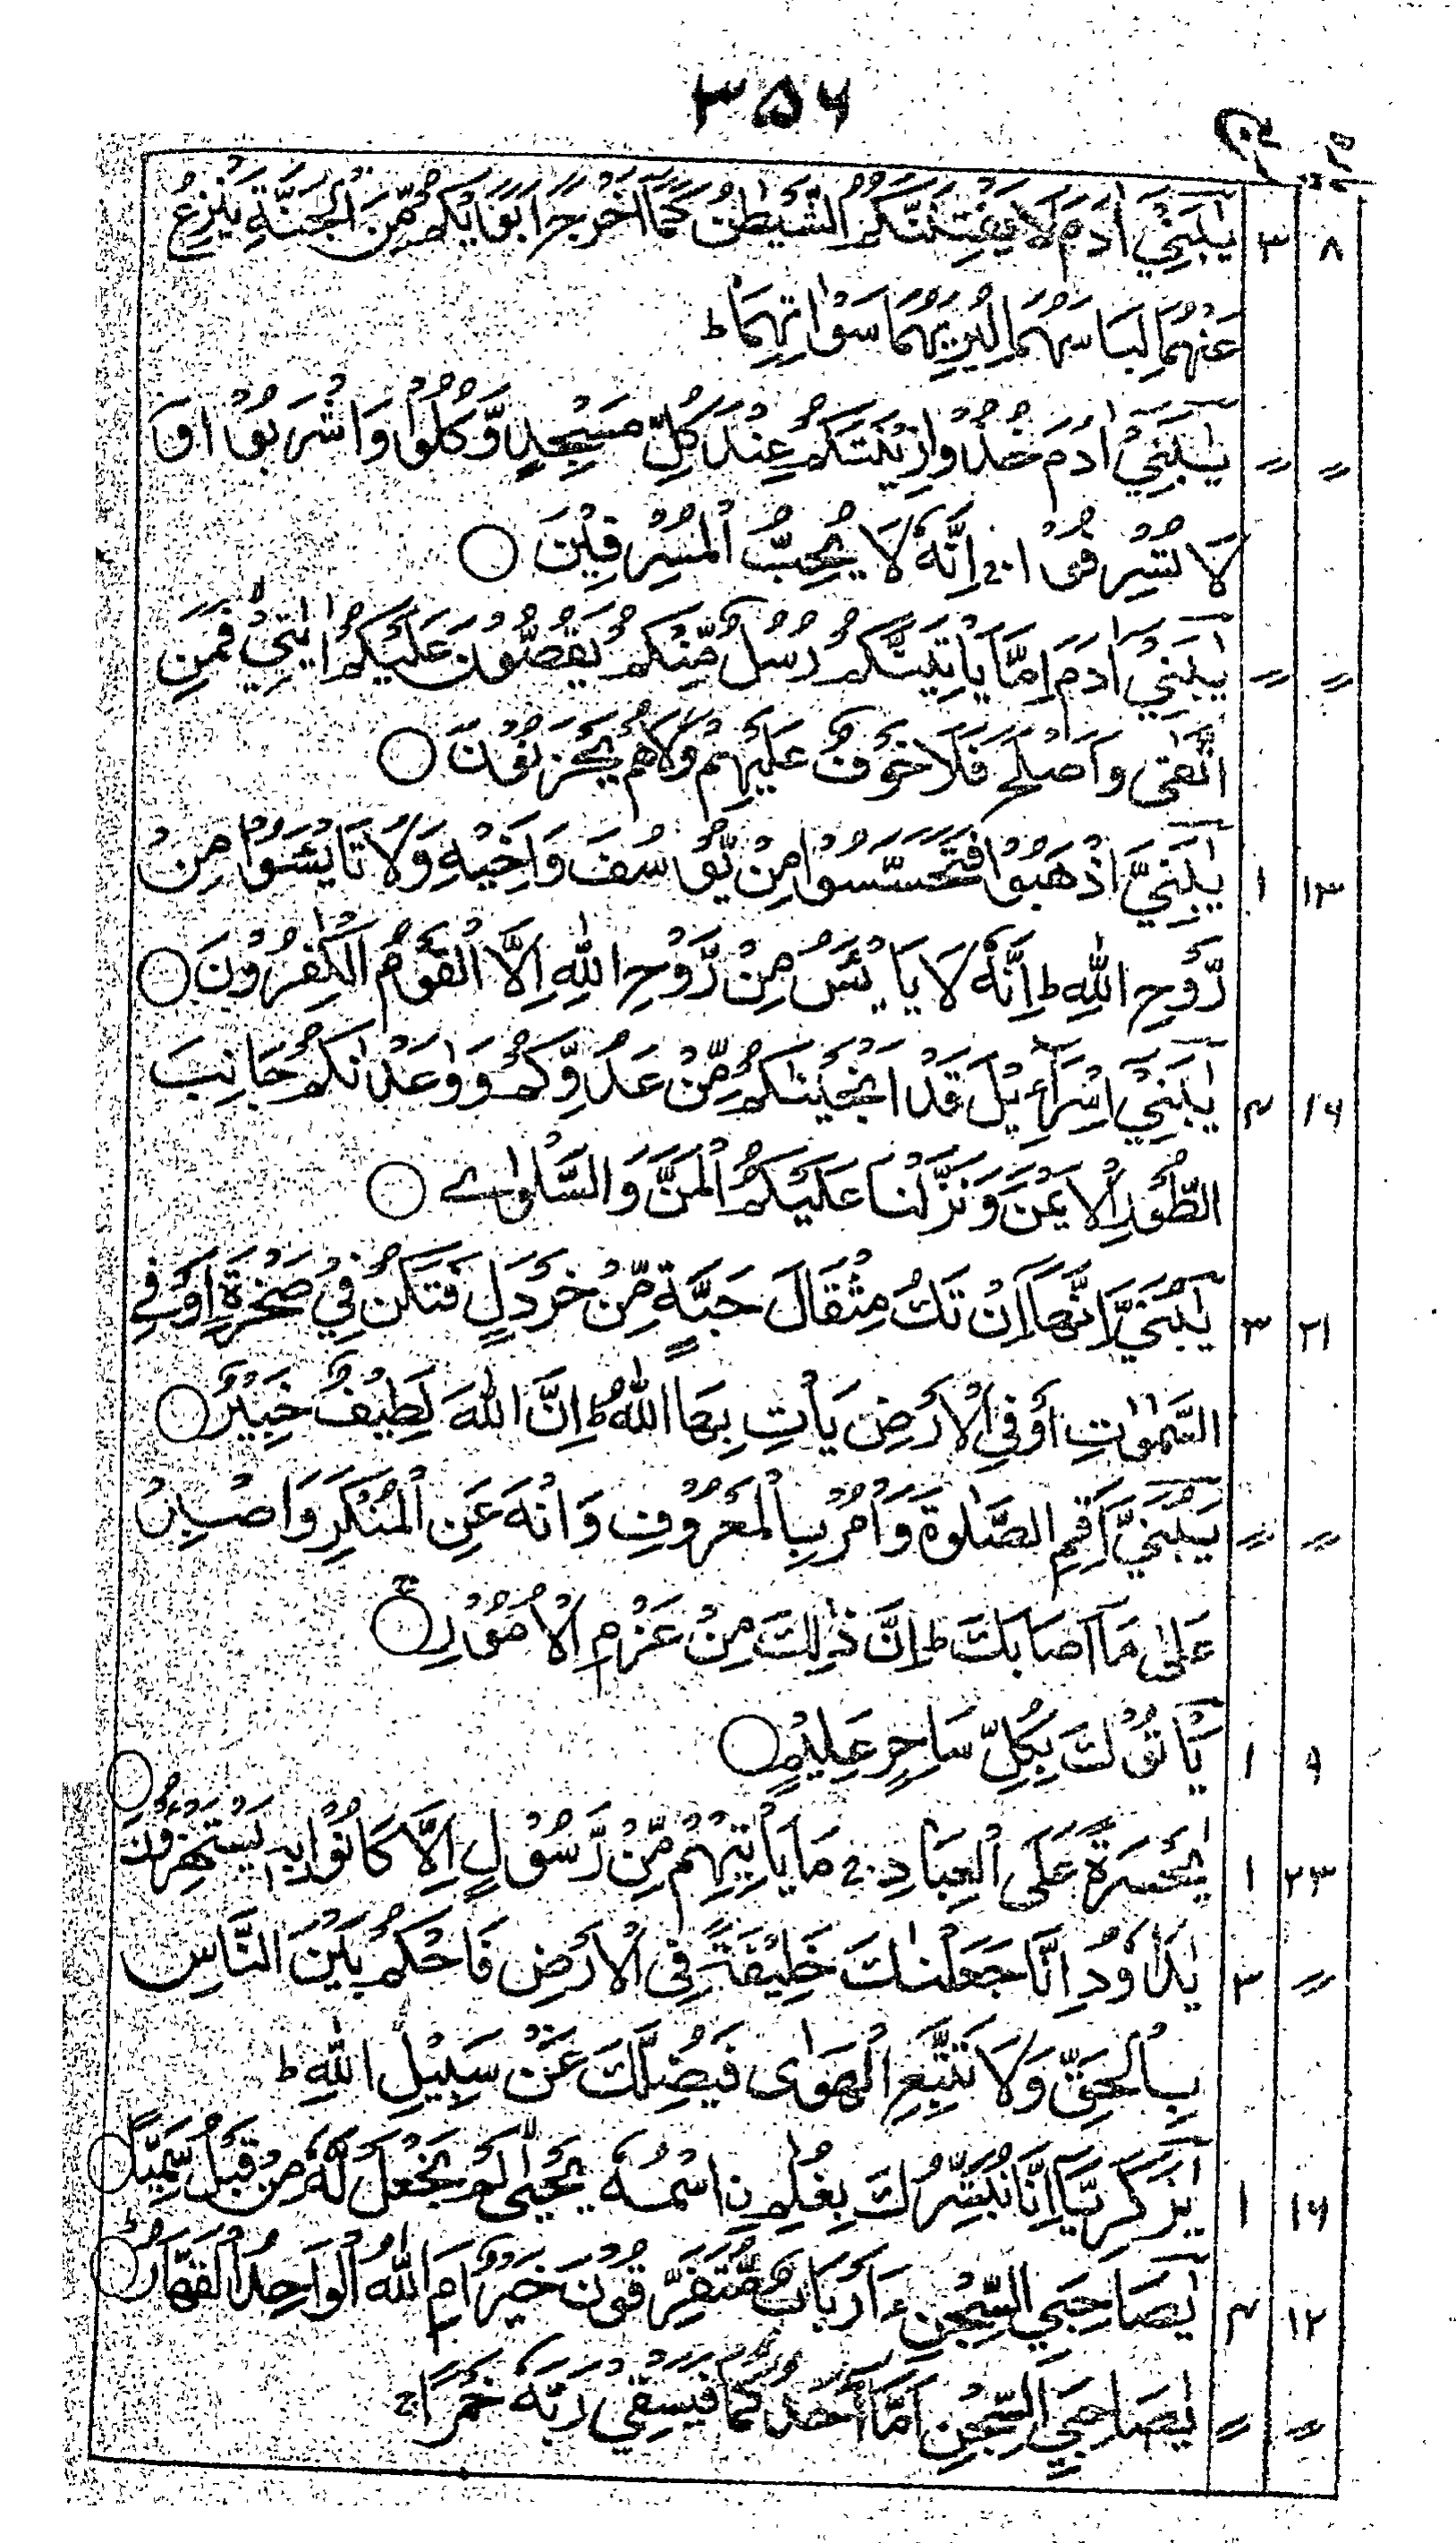 ۳۵۶
۸ ۳ يٰبَنِيْٓ اٰدَمَ لَا يَفْتِنَنَّكُمُ الشَّيْطٰنُ كَمَآ اَخْرَجَ اَبَوَيْكُمْ مِّنَ الْجَنَّةِ يَنْزِعُ
عَنْهُمَا لِبَاسَهُمَا لِيُرِيَهُمَا سَوْاٰتِهِمَا ط
〃 〃 يٰبَنِيْٓ اٰدَمَ خُذُوْا زِيْنَتَكُمْ عِنْدَ كُلِّ مَسْجِدٍ وَّكُلُوْا وَاشْرَبُوْا وَ
لَا تُسْرِفُوْا ج اِنَّهٗ لَا يُحِبُّ الْمُسْرِفِيْنَ ○
〃 〃 يٰبَنِيْٓ اٰدَمَ اِمَّا يَاْتِيَنَّكُمْ رُسُلٌ مِّنْكُمْ يَقُصُّوْنَ عَلَيْكُمْ اٰيٰتِيْ لا فَمَنِ
اتَّقٰى وَاَصْلَحَ فَلَا خَوْفٌ عَلَيْهِمْ وَلَا هُمْ يَحْزَنُوْنَ ○
۱۳ ۱ يٰبَنِيَّ اذْهَبُوْا فَتَحَسَّسُوْا مِنْ يُّوْسُفَ وَاَخِيْهِ وَلَا تَايْئَسُوْا مِنْ
رَّوْحِ اللّٰهِ ط اِنَّهٗ لَا يَايْئَسُ مِنْ رَّوْحِ اللّٰهِ اِلَّا الْقَوْمُ الْكٰفِرُوْنَ ○
۱۶ ۴ يٰبَنِيْٓ اِسْرَآءِيْلَ قَدْ اَنْجَيْنٰكُمْ مِّنْ عَدُوِّكُمْ وَوٰعَدْنٰكُمْ جَانِبَ
الطُّوْرِ الْاَيْمَنَ وَنَزَّلْنَا عَلَيْكُمُ الْمَنَّ وَالسَّلْوٰے ○
۲۱ ۳ يٰبُنَيَّ اِنَّهَآ اِنْ تَكُ مِثْقَالَ حَبَّةٍ مِّنْ خَرْدَلٍ فَتَكُنْ فِيْ صَخْرَةٍ اَوْ فِے
السَّمٰوٰتِ اَوْ فِي الْاَرْضِ يَاْتِ بِهَا اللّٰهُ ط اِنَّ اللّٰهَ لَطِيْفٌ خَبِيْرٌ ○
〃 〃 يٰبُنَيَّ اَقِمِ الصَّلٰوةَ وَاْمُرْ بِالْمَعْرُوْفِ وَانْهَ عَنِ الْمُنْكَرِ وَاصْبِرْ
عَلٰى مَآ اَصَابَكَ ط اِنَّ ذٰلِكَ مِنْ عَزْمِ الْاُمُوْرِ ○ ج
۹ ۱ يَاْتُوْكَ بِكُلِّ سَاحِرٍ عَلِيْمٍ ○
۲۳ ۱ يٰحَسْرَةً عَلَى الْعِبَادِ ج مَا يَاْتِيْهِمْ مِّنْ رَّسُوْلٍ اِلَّا كَانُوْا بِهٖ يَسْتَهْزِءُوْنَ ○
〃 ۳ يٰدَاوٗدُ اِنَّا جَعَلْنٰكَ خَلِيْفَةً فِى الْاَرْضِ فَاحْكُمْ بَيْنَ النَّاسِ
بِالْحَقِّ وَلَا تَتَّبِعِ الْهَوٰى فَيُضِلَّكَ عَنْ سَبِيْلِ اللّٰهِ ط
۱۶ ۱ يٰزَكَرِيَّآ اِنَّا نُبَشِّرُكَ بِغُلٰمِ نِ اسْمُهٗ يَحْيٰى لا لَمْ نَجْعَلْ لَّهٗ مِنْ قَبْلُ سَمِيًّا ○
۱۲ ۴ يٰصَاحِبَيِ السِّجْنِ ءَاَرْبَابٌ مُّتَفَرِّقُوْنَ خَيْرٌ اَمِ اللّٰهُ الْوَاحِدُ الْقَهَّارُ ○ ط
〃 〃 يٰصَاحِبَيِ السِّجْنِ اَمَّآ اَحَدُكُمَا فَيَسْقِيْ رَبَّهٗ خَمْرًا ج